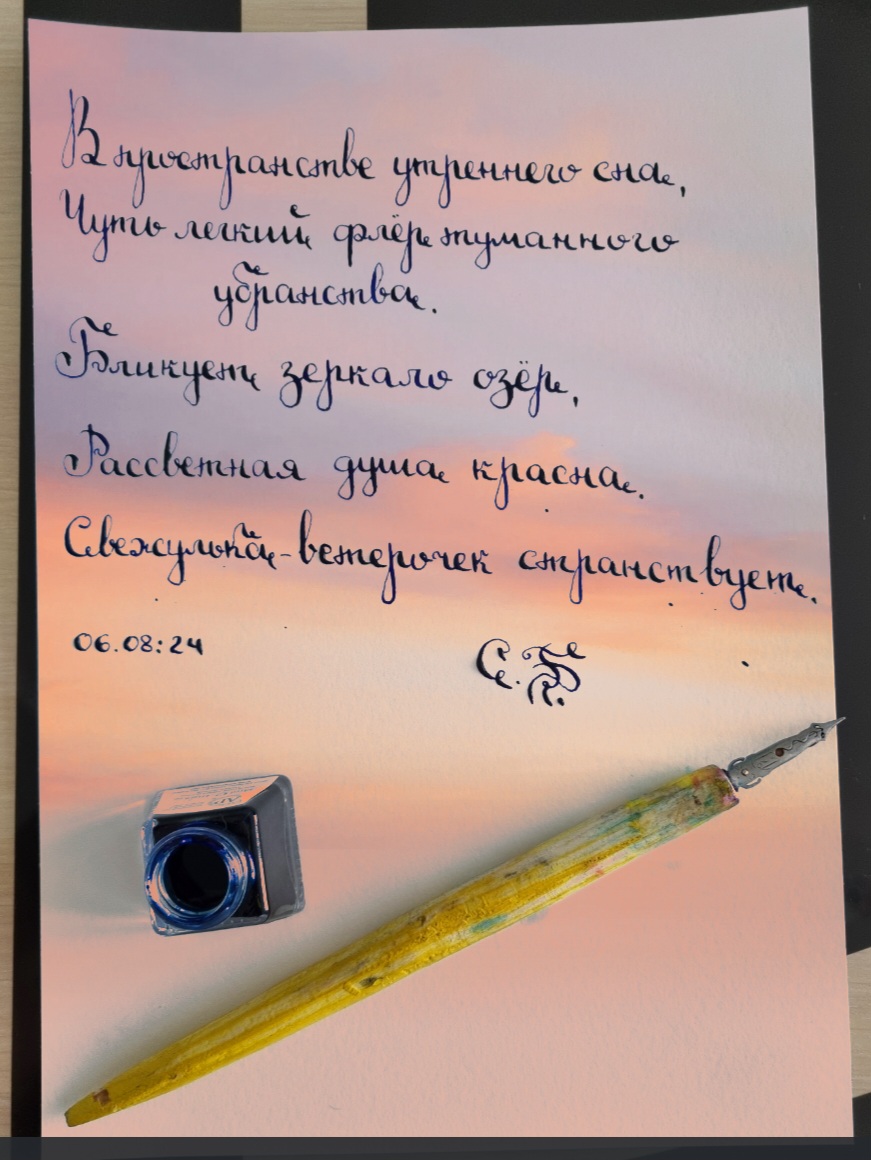 В пространстве утреннего сна,
Чуть легкий флёр туманного
убранства.
Бликует зеркало озёр,
Рассветная душа красна.
Свежулька-ветерочек странствует.
06.08:24
С.Б.